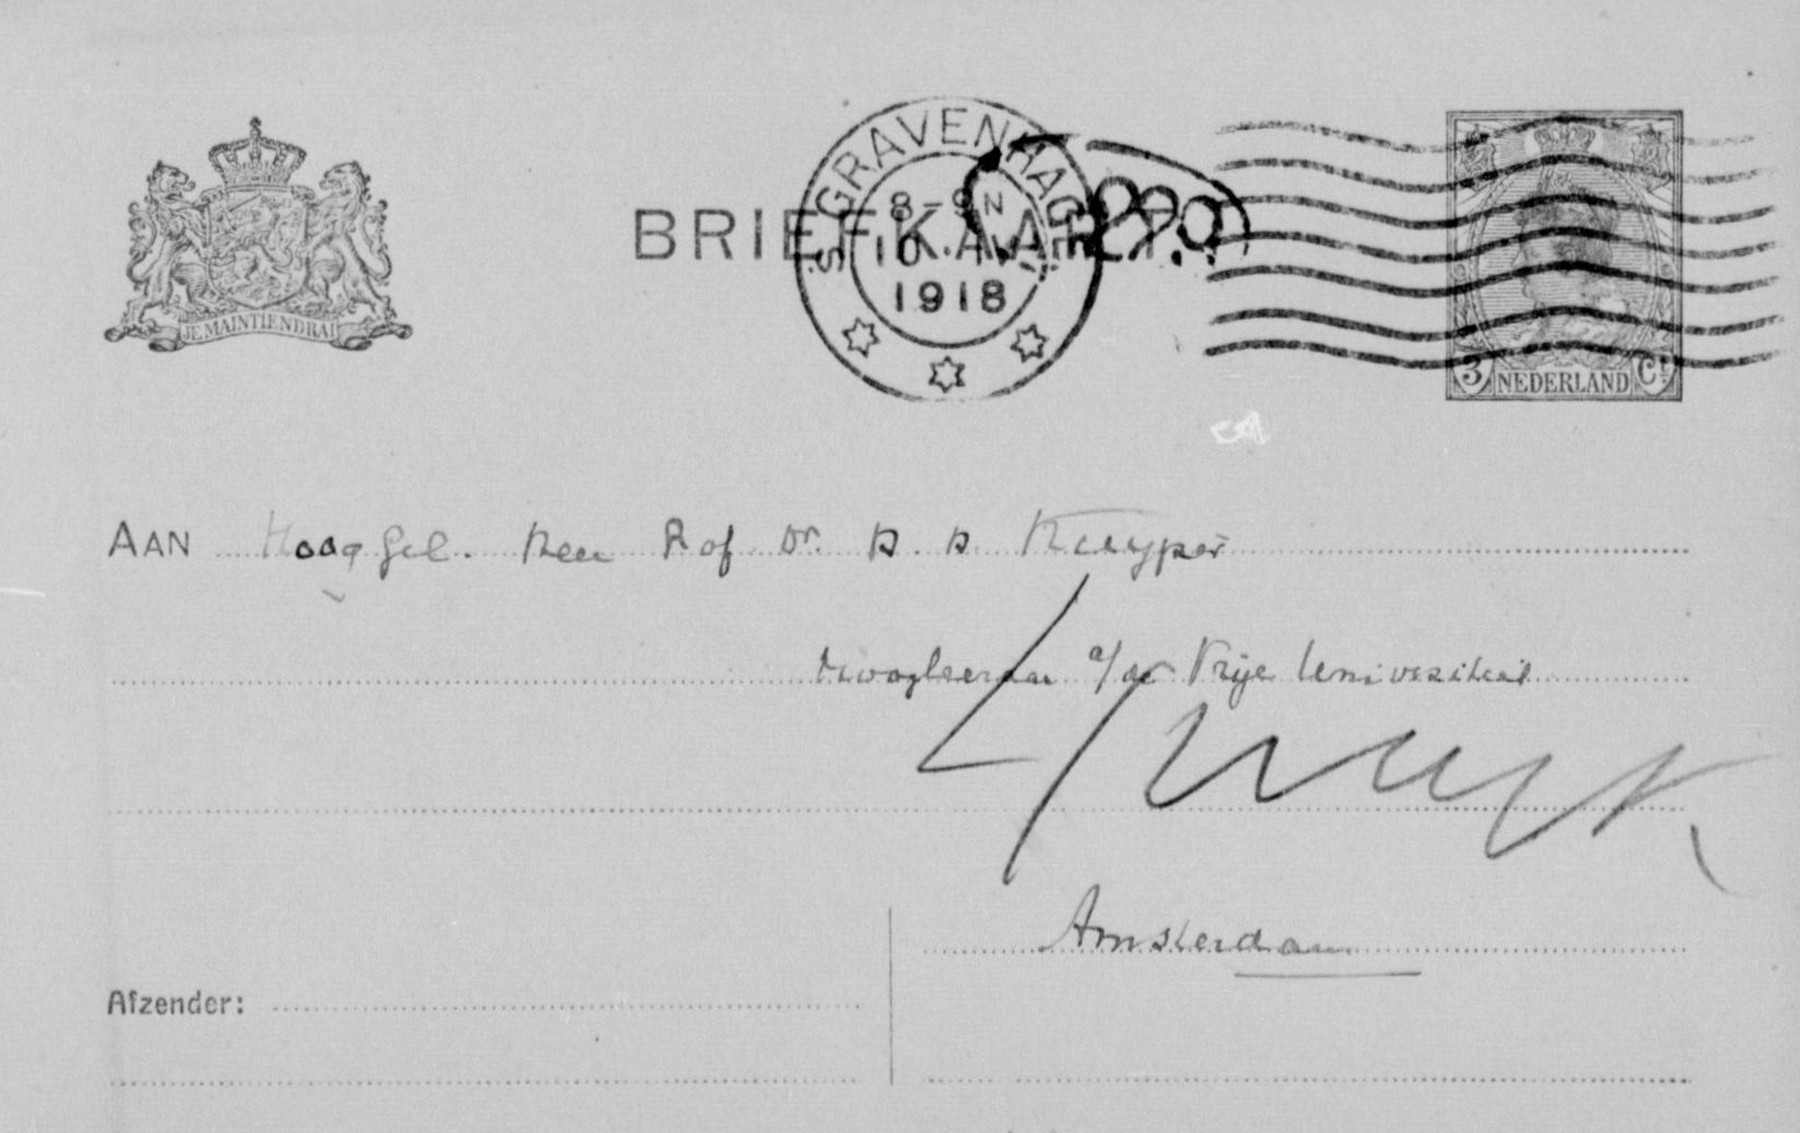 BRIEFKAART
'S GRAVENHAGE
8-9 N
10.
1918
JE MAINTIENDRAI
3 NEDERLAND Ct
AAN Hooggel. Heer Prof Dr. H. H. Kuyper
Hoogleeraar a/de Vrije Universiteit
Amsterdam
Afzender: